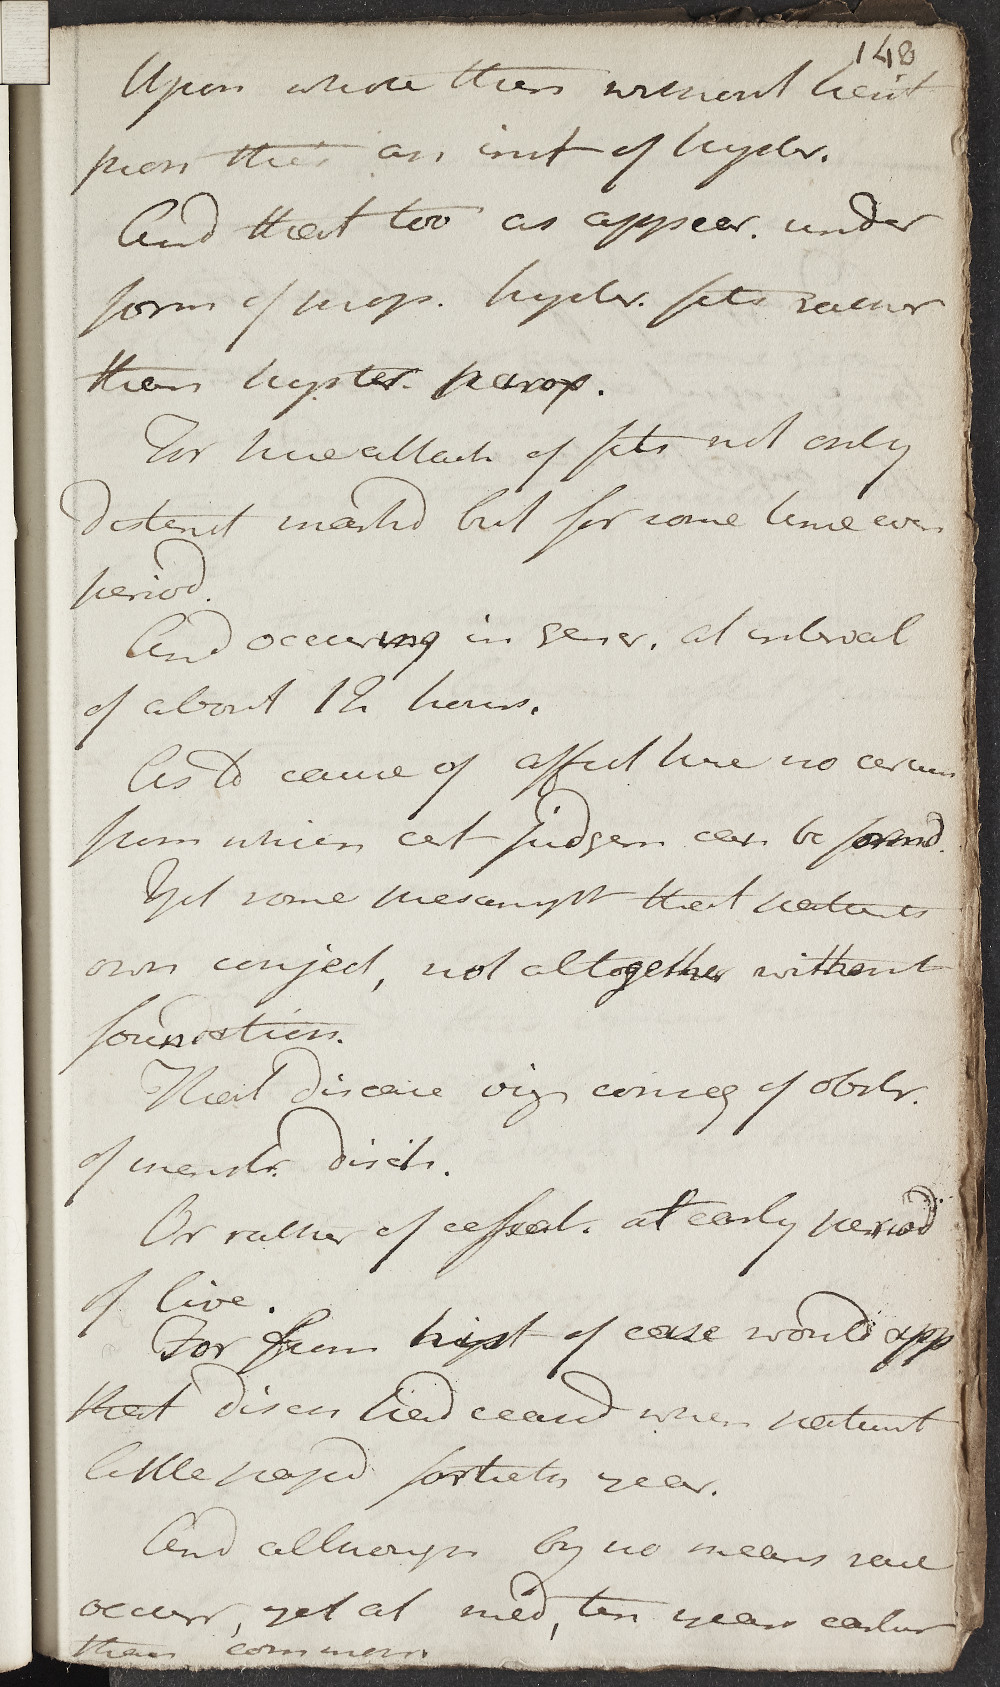 148
Upon whole then without hesit
pron this an inst of hyster.
And that too as appear. under
form of prop. hyster. fits rather
than hyster. parox.
For here attack of fits not only
distinct markd but for some time even
period.
And occurring in gener. at interval
of about 12 hours.
As to cause of affect here no circum
from which cert judgem can be formd.
Yet some presumpt that patients
own conject, not altogether without
foundation.
That disease orig conseq of obstr.
of menstr. disch.
Or rather of cessat. at early period
of live.
For from hist of case would app
that disch had ceased when patient
little passd fortieth year.
And although by no means rare
occurr, yet at med, ten years earlier
than common.